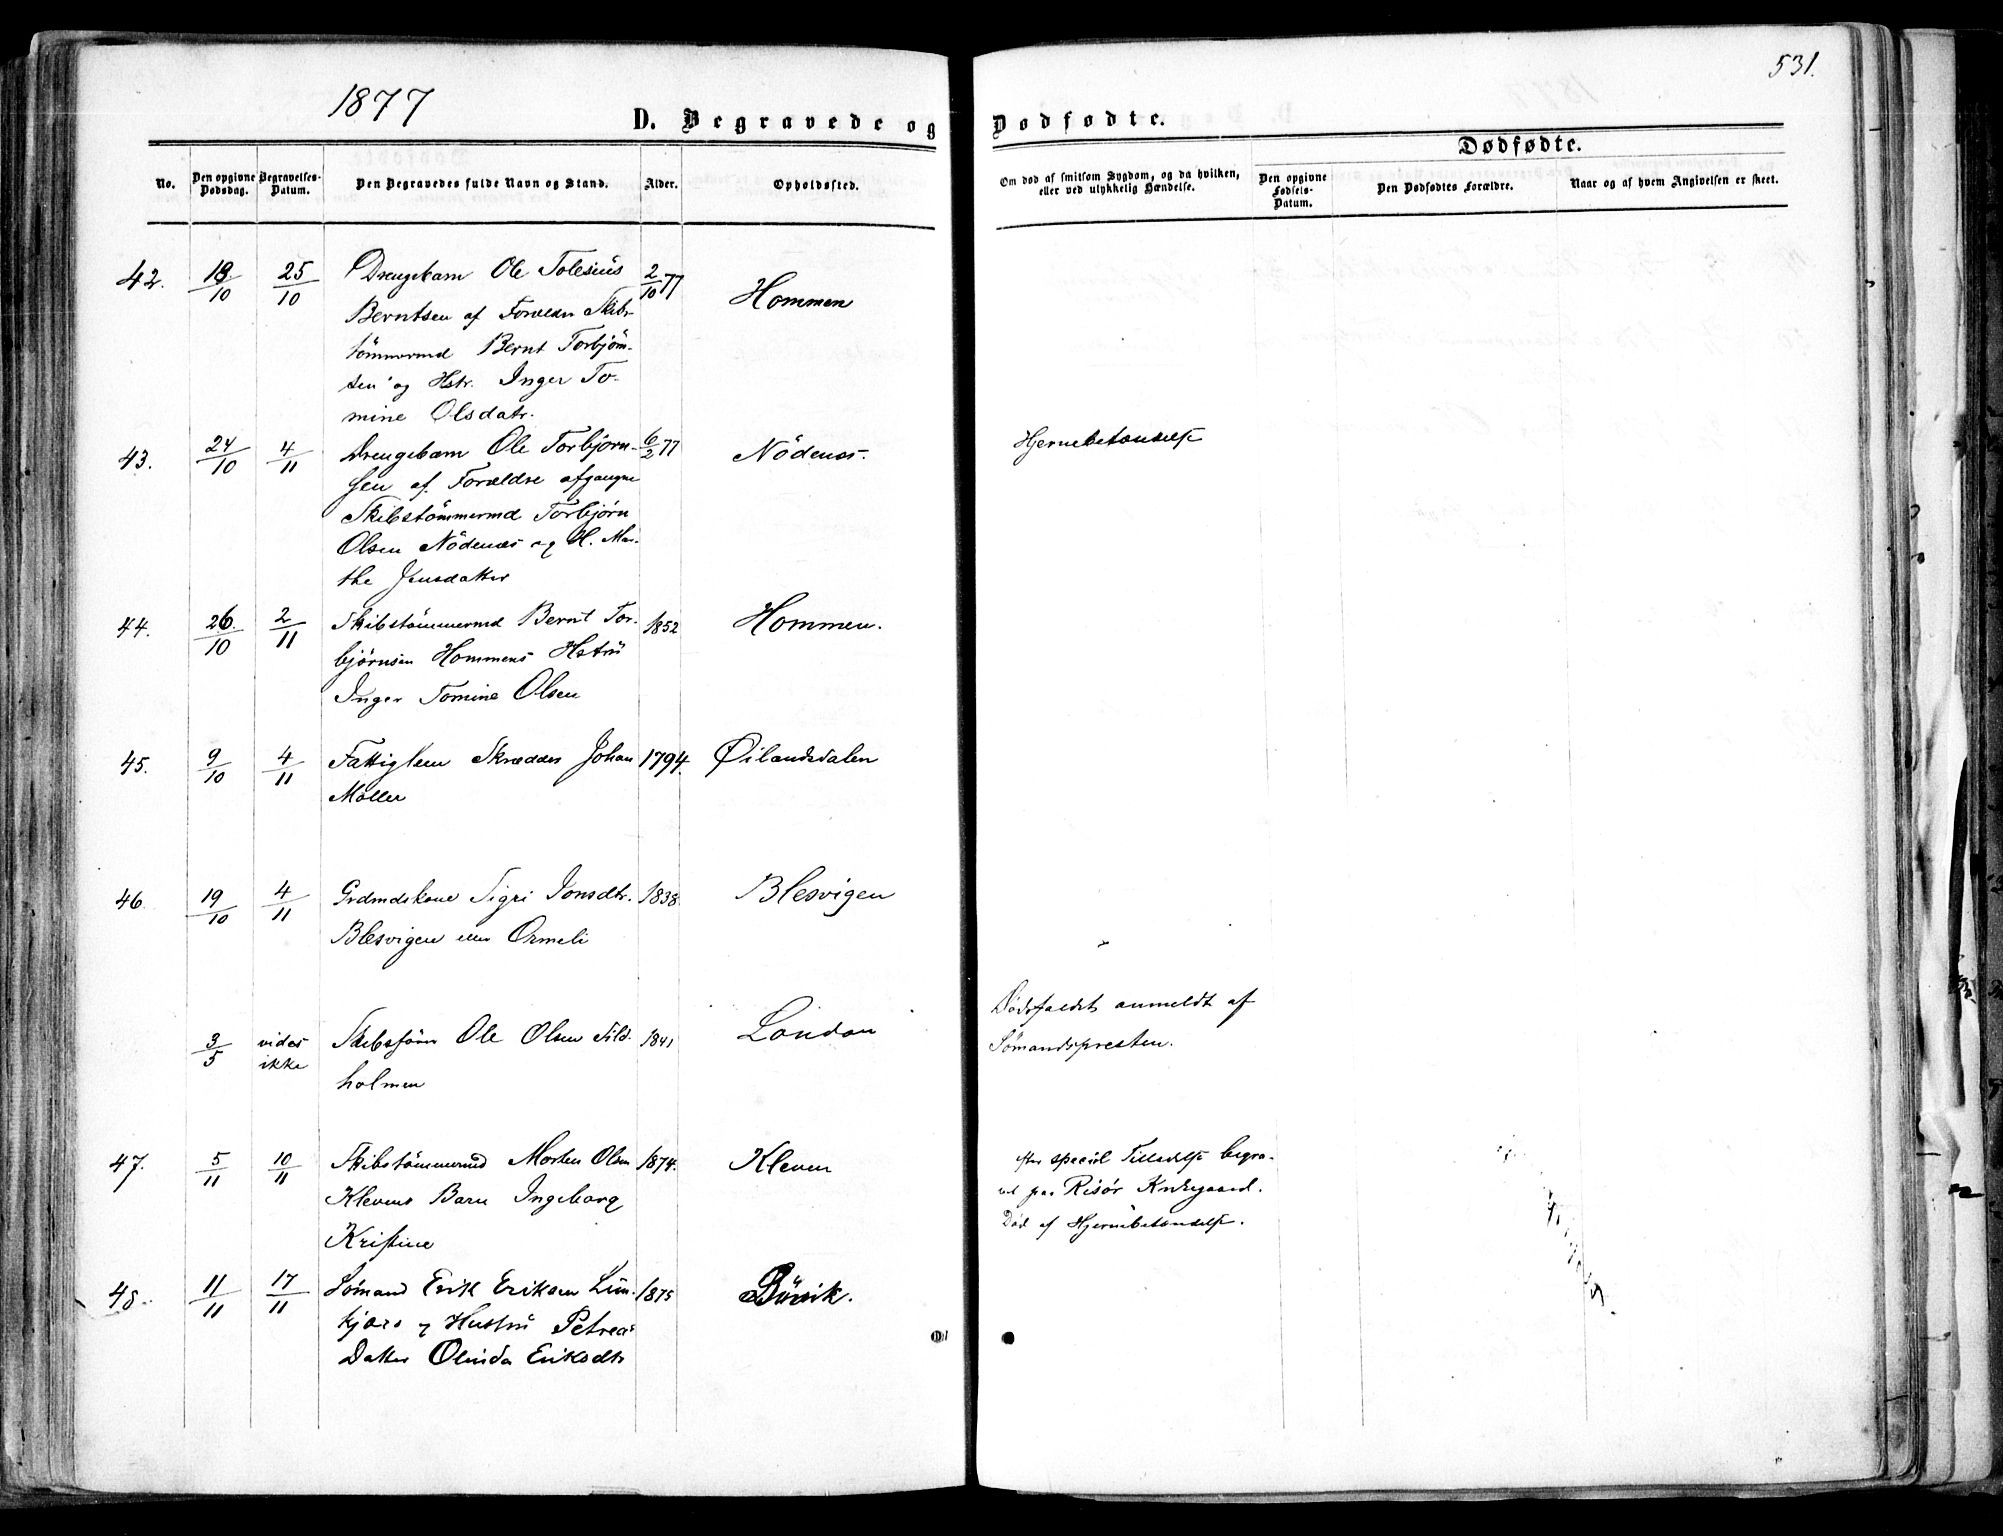 1877
531.
D. Begravede og Dødfødte.
Dødfødte.
No.
Den opgivne Dødsdag.
Begravelses-Datum.
Den Begravedes fulde Navn og Stand.
Alder.
Opholdssted.
Om død af smitsom Sygdom, og da hvilken, eller ved ulykkelig Hændelse.
Den opgivne Fødsels-Datum.
Den Dødfødtes Forældre.
Naar og af hvem Angivelsen er skeet.
42. 18/10 25/10 Drengebarn Ole Tolesius 2/10 77 Hommen
Berntsen af Forældre Skibs-
tømmermd Bernt Torbjørn-
sen og Hstr. Inger To-
mine Olsdatr.
43. 24/10 4/11 Drengebarn Ole Torbjørn- 6/2 77 Nödenæs. Hjernebetændelse
sen af Forældre afgangne
Skibstömmermd Torbjörn
Olsen Nödenæs og H. Mar-
the Jensdatter
44. 26/10 2/11 Skibstömmermd Bernt Tor- 1852 Hommen.
bjørnsen Hommens Hstru
Inger Tomine Olsen
45. 9/10 4/11 Fattiglem Skrædder Johan 1794. Øilandsdalen
Møller
46. 19/10 4/11 Grdmdskone Sigri Jonsdtr. 1838. Blesvigen
Blesvigen eller Ormeli
3/5 vides ikke Skibsfører Ole Olsen Sild- 1841 London Dødsfaldet anmeldt af
holmen Sømandspresten.
47. 5/11 10/11 Skibstömmermd Morten Olsen 1874. Kleven efter speciel Tilladelse begra-
Klevens Barn Ingeborg vet paa Risør Kirkegaard.
Kristine Død af Hjernebetændelse.
48. 11/11 17/11 Sømand Erik Eriksen Lin- 1875
kjærs og Hustru Petreas
Datter Olinda Eriksdtr